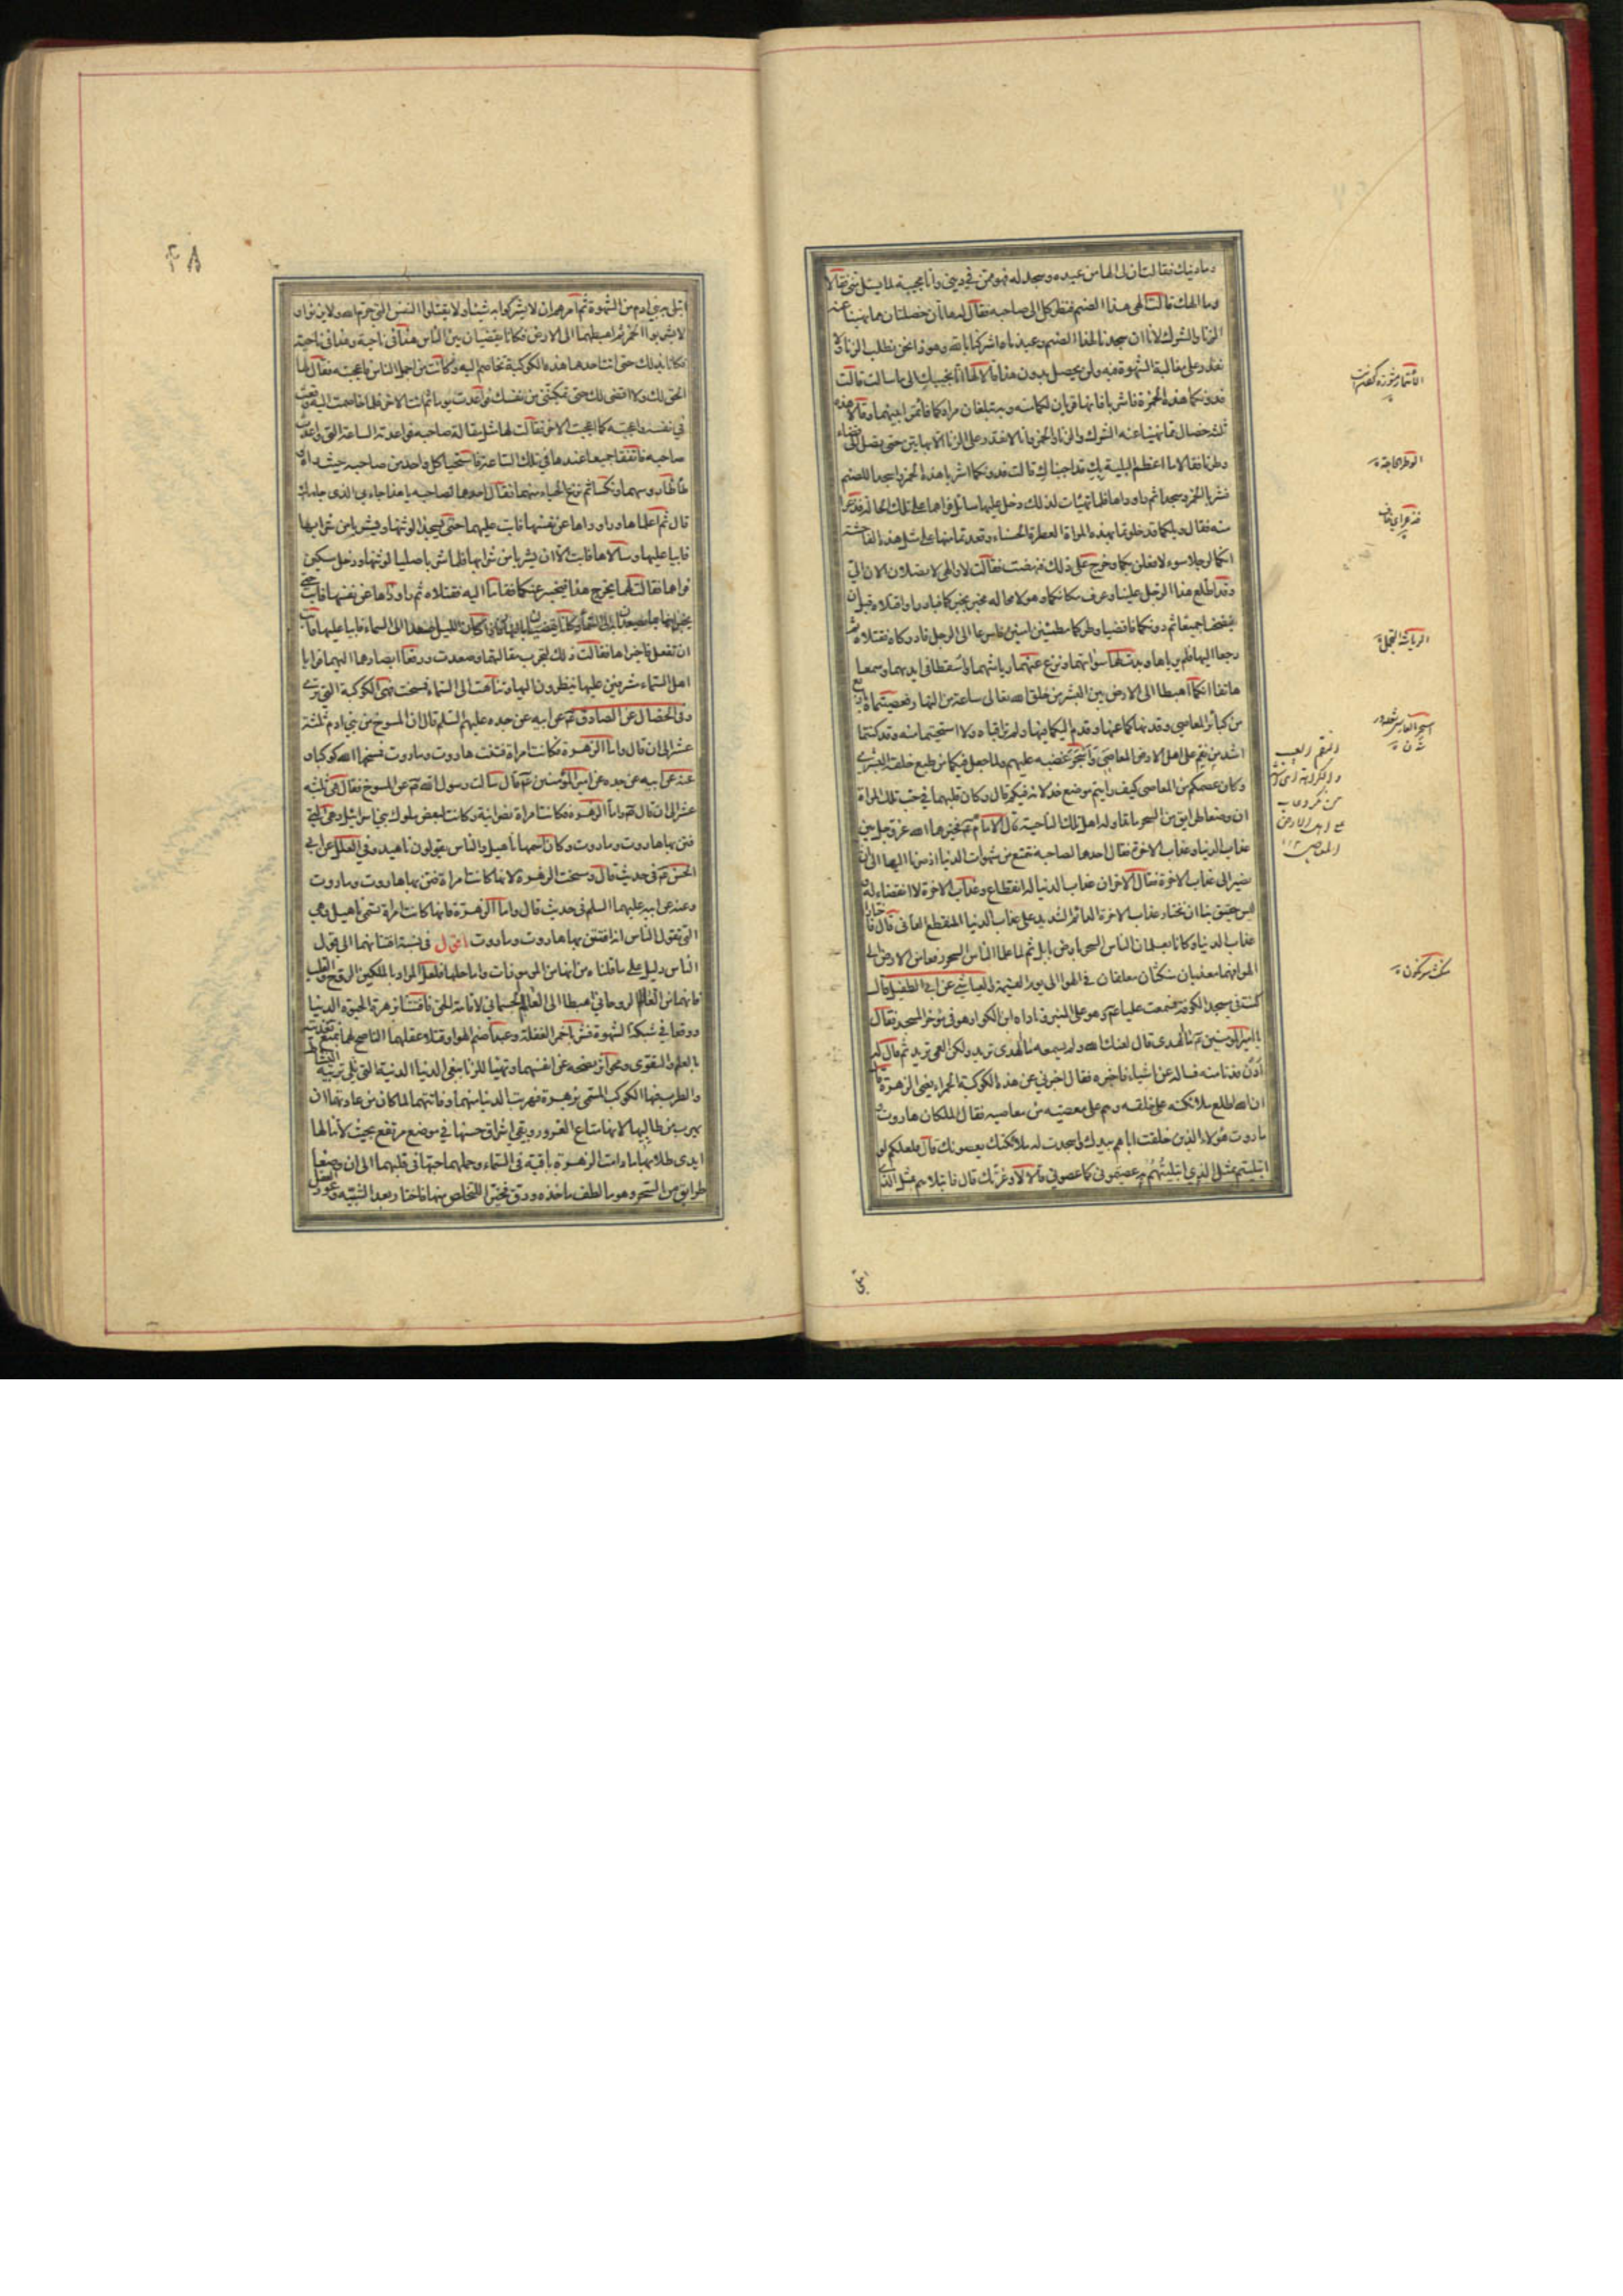 وما دينك فقالت ان لي الها من عبده وسجد له فهو ممن في ديني وانا مجيبة لما يسئلني فقالا
وما الهك قالت الهي هذا الصنم فنظر كل الى صاحبه فقال له هاتان خصلتان مما نهينا عنه
الزنا والشرك لانا ان سجدنا لهذا الصنم وعبدناه اشركنا بالله وهو ذا نحن نطلب الزنا ولا
نقدر على مغالبة الشهوة فيه ولن يحصل بدون هذا قالا لها انا نجيبك الى ما سالت قالت
فدونكما هذه الخمرة فاشرباها فانها قربان لكما منه وبه تبلغان مرادكما فأتمرا بينهما وقالا هذه
ثلثه خصال مما نهينا عنه الشرك والزنا والخمر وانا لا نقدر على الزنا الا بهاتين حتى نصل الى قضاء
وطرنا فقالا ما اعظم البلية بك قد اجبناك قالت فدونكما اشربا هذه الخمر واسجدا للصنم
فشربا الخمر وسجدا ثم راوداها فلما تهيأت لذلك دخل عليهما سائل فراهما على تلك الحالة فذعرا
منه فقال ويلكما قد خلوتما بهذه المراة العطرة الحسناء وقعدتما منها على مثل هذه الفاحشة
انكما لرجلا سوء لافعلن بكما وخرج على ذلك فنهضت فقالت لا والهي لا تصلان الان الي
وقد اطلع هذا الرجل علينا وعرف مكانكما وهو لا محاله مخبر بخبركما فبادرا واقتلاه قبل ان
يفضحنا جميعا ثم دونكما فاقضيا وطركما مطمئنين امنين فاسرعا الى الرجل فادركاه فقتلاه ثم
رجعا اليها فلم يرياها وبدت لهما سواتهما ونزع عنهما رياشهما واسقطا في ايديهما وسمعا
هاتفا انكما اهبطتما الى الارض بين البشر من خلق الله تعالى ساعة من النهار فعصيتماه باربع
من كبائر المعاصي وقد نهاكما عنها وقدم اليكما فيها ولم تراقباه ولا استحيتما منه وقد كنتما
اشد من نقم على اهل الارض المعاصي واسجر غضبه عليهم ولما جعل فيكما من طبع خلقة البشري
وكان عصمكم من المعاصي كيف رايتم موضع خذلانه فيكم قال وكان قلبهما في حب تلك المراة
ان وضعا طرايق من السحر ما تداوله اهل تلك الناحية قال الامام ع فخيرهما الله عز وجل بين
عذاب الدنيا وعذاب الاخرة فقال احدهما لصاحبه نتمتع من شهوات الدنيا اذ صرنا اليها الى ان
نصير الى عذاب الاخرة فقال الاخر ان عذاب الدنيا له انقطاع وعذاب الاخرة لا انقضاء له
فليس حقيق بنا ان نختار عذاب الاخرة الدائم الشديد على عذاب الدنيا المنقطع الفاني قال فاختارا
عذاب الدنيا وكانا يعلمان الناس السحر بارض بابل ثم لما علما الناس السحر رفعا من الارض الى
الهوا فهما معذبان منكسان معلقان في الهوا الى يوم القيمة والعياشي عن ابي الطفيل قال
كنت في مسجد الكوفة فسمعت عليا ع وهو على المنبر وناداه ابن الكوا وهو في مؤخر المسجد فقال
يا امير المؤمنين ع ما الهدى قال لعنك الله ولم يسمعه ما الهدى تريد ولكن العمى تريد ثم قال له
ادن فدنا منه فساله عن اشياء فاخبره فقال اخبرني عن هذه الكوكبة الحمراء يعني الزهرة قال
ان الله اطلع ملائكته على خلقه وهم على معصيته من معاصيه فقال الملكان هاروت و
ماروت هؤلاء الذين خلقت اباهم بيدك واسجدت له ملائكتك يعصونك قال فلعلكم لو
ابتليتم بمثل الذي ابتليتهم به عصيتموني كما عصوني قالا لا وعزتك قال فابتلاهم بمثل الذي
ابتلى
الائتمار مشورة كردن
الوطر الحاجة
الرياش التجمل
نكث سرنگون
۴۸
ابتلى به بني ادم من الشهوة ثم امرهما ان لا يشركوا به شيئا ولا يقتلوا النفس التي حرم الله ولا يزنوا و
لا يشربوا الخمر ثم اهبطهما الى الارض فكانا يقضيان بين الناس هذا في ناحية وهذا في ناحية
فكانا بذلك حتى اتت احدهما هذه الكوكبة تخاصم اليه وكانت من اجمل الناس فاعجبته فقال لها
الحق لك ولا اقضي لك حتى تمكنيني من نفسك فواعدت يوما ثم اتت الاخر فلما خاصمت اليه وقعت
في نفسه واعجبته كما اعجبت الاخر فقالت لها مثل مقالة صاحبه فواعدته الساعة التي واعدت
صاحبه فاتفقا جميعا عندها في تلك الساعة فاستحيا كل واحد من صاحبه حيث راه
طأطأ روسهما ونكسا ثم نزع الحياء منهما فقال احدهما لصاحبه يا هذا جاء بي الذي جاء بك
قال ثم اعلماها وراوداها عن نفسها فابت عليهما حتى يسجدا لوثنها ويشربا من شرابها
فابيا عليها وسالاها فابت الا ان يشربا من شرابها فلما شربا صليا لوثنها ودخل مسكين
فراهما فقالت لهما يخرج هذا فيخبر عنكما فقاما اليه فقتلاه ثم راوداها عن نفسها فابت حتى
يخبراها بما يصعدان به الى السماء وكانا يقضيان بالنهار فاذا كان الليل صعدا الى السماء فابيا عليها فابت
ان تفعل فاخبراها فقالت ذلك لتجرب مقالتهما وصعدت ورفعا ابصارهما اليها فرايا
اهل السماء مشرفين عليهما ينظرون اليهما وتناهت الى السماء فمسخت فهي الكوكبة التي ترى
وفي الخصال عن الصادق ع عن ابيه عن جده عليهم السلم قال ان المسوخ من بني ادم ثلثة
عشر الى ان قال واما الزهرة فكانت امراة فتنت هاروت وماروت فمسخها الله كوكبا و
عنه عن ابيه عن جده عن امير المؤمنين ع قال سالت رسول الله ص عن المسوخ فقال هي ثلثه
عشر الى ان قال ص واما الزهرة فكانت امراة نصرانية وكانت لبعض ملوك بني اسرائيل وهي التي
فتن بها هاروت وماروت وكان اسمها ناهيل والناس يقولون ناهيد وفي العلل عن ابي
الحسن ع في حديث قال ومسخت الزهرة لانها كانت امراة فتن بها هاروت وماروت
وعنه عن ابيه عليهما السلم في حديث قال واما الزهرة فانها كانت امراة تسمى ناهيل وهي
التي تقول الناس انه افتتن بها هاروت وماروت اقول في نسبة افتتانهما الى قول
الناس دليل على ما قلناه من انها من المرموزات واما حلها فلعل المراد بالملكين الروح والقلب
فانهما من العالم الروحاني اهبطا الى العالم الجسماني لاقامة الحق فافتتنا بزهرة الحيوة الدنيا
ووقعا في شبكة الشهوة فشربا خمر الغفلة وعبدا صنم الهوا وقتلا عقلهما الناصح لهما بمنع تغذيته
بالعلم والتقوى ومحو اثر نصحه عن انفسهما وتهيئا للزنا ببغي الدنيا الدنية التي تلي تربية النشاط
والطرب فيها الكوكب المسمى بزهرة فهربت الدنيا منهما وفاتتهما لما كان من عادتها ان
تهرب من طالبيها لانها متاع الغرور وبقي اشراق حسنها في موضع مرتفع بحيث لا تنالها
ايدي طلابها ما دامت الزهرة باقية في السماء وحملهما حبها في قلبهما الى ان وضعا
طرايق من السحر وهو ما لطف ماخذه ودق فخيرا للتخلص منها فاختارا بعد التنبه وعود العقل